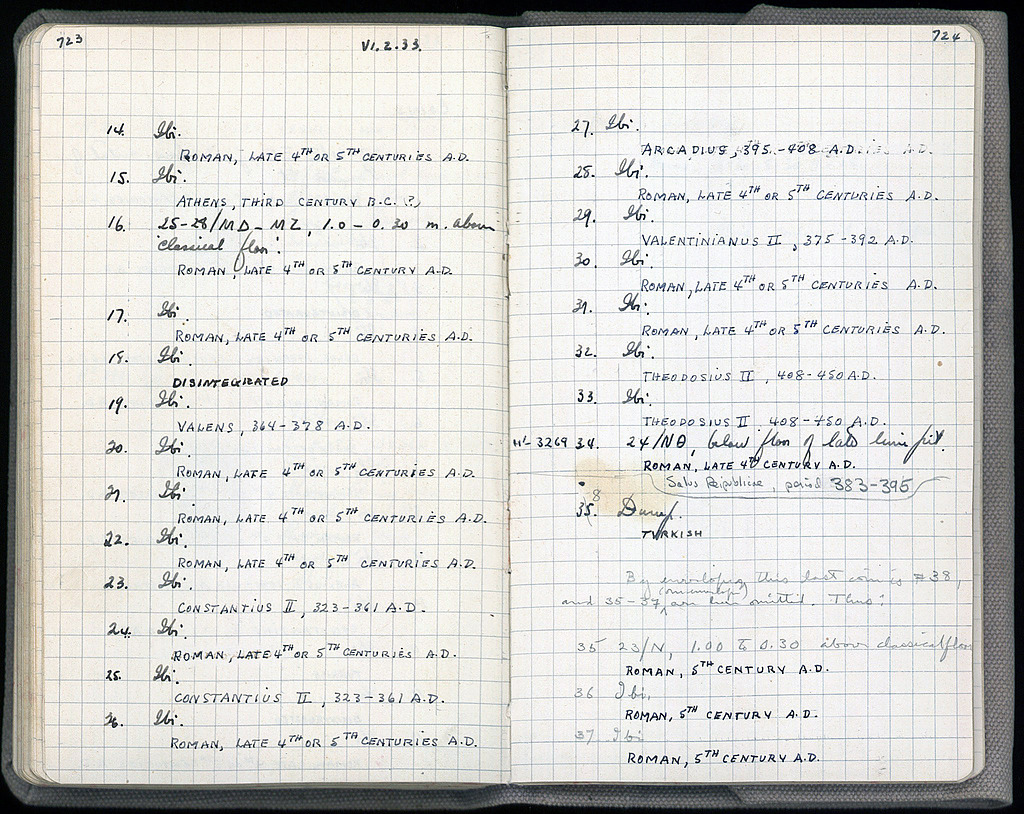 723
VI.2.33.
14. Ibi.
ROMAN, LATE 4TH OR 5TH CENTURIES A.D.
15. Ibi.
ATHENS, THIRD CENTURY B.C. (?)
16. 25-28/MΔ-MZ, 1.0-0.30 m. above
"classical floor":
ROMAN, LATE 4TH OR 5TH CENTURY A.D.
17. Ibi.
ROMAN, LATE 4TH OR 5TH CENTURIES A.D.
18. Ibi.
DISINTEGRATED
19. Ibi.
VALENS, 364-378 A.D.
20. Ibi.
ROMAN, LATE 4TH OR 5TH CENTURIES A.D.
21. Ibi.
ROMAN, LATE 4TH OR 5TH CENTURIES A.D.
22. Ibi.
ROMAN, LATE 4TH OR 5TH CENTURIES A.D.
23. Ibi.
CONSTANTIUS II, 323-361 A.D.
24. Ibi.
ROMAN, LATE 4TH OR 5TH CENTURIES A.D.
25. Ibi.
CONSTANTIUS II, 323-361 A.D.
26. Ibi.
ROMAN, LATE 4TH OR 5TH CENTURIES A.D.
724
27. Ibi.
ARCADIUS, 395-408 A.D.
28. Ibi.
ROMAN, LATE 4TH OR 5TH CENTURIES A.D.
29. Ibi.
VALENTINIANUS II, 375-392 A.D.
30. Ibi.
ROMAN, LATE 4TH OR 5TH CENTURIES A.D.
31. Ibi.
ROMAN, LATE 4TH OR 5TH CENTURIES A.D.
32. Ibi.
THEODOSIUS II, 408-450 A.D.
33. Ibi.
THEODOSIUS II 408-450 A.D.
3269 34. 24/NΘ, below floor of late lime pit.
ROMAN, LATE 4TH CENTURY A.D.
Salus Reipublicae, period 383-395
8
35. Dump.
TURKISH
By envelopes this last coin is #38,
(on envelope)
and 35-37 are here omitted. Thus:
35 23/N, 1.00 to 0.30 above classical floor
ROMAN, 5TH CENTURY A.D.
36 Ibi.
ROMAN, 5TH CENTURY A.D.
37 Ibi
ROMAN, 5TH CENTURY A.D.